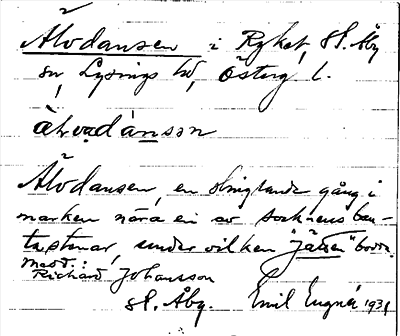 Älvdansen i Ryket, St. Åby
sn, Lysings hd, Österg. l.
älvadansen
Älvdansen, en slingrande gång i
marken nära en av socknens bau-
tastenar, under vilken "jätten" bodde.
Medd.:
Richard Johansson
St. Åby. Emil Eugnér 1931